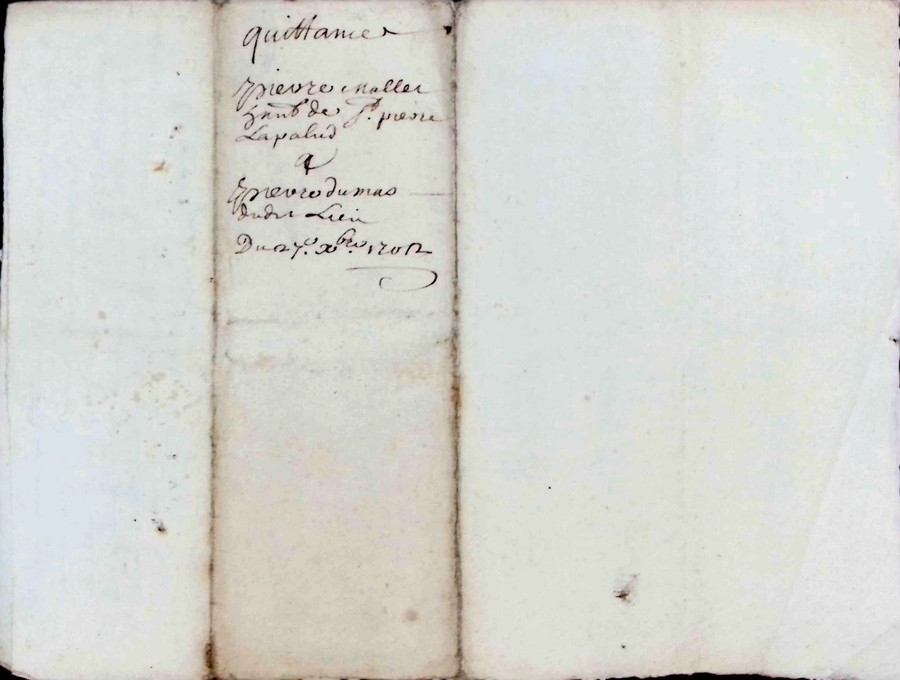 quittance
pierre Mallet
hant de St. pierre
Lapalud
a
pierre dumas
dudit Lieu
Du 27e xbre 1702